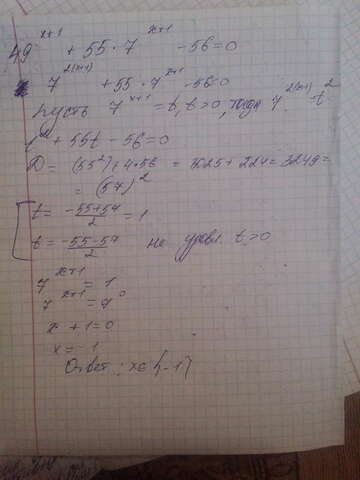 49^(x+1) + 55·7^(x+1) - 56=0
7^(2(x+1)) +55·7^(x+1) -56=0
пусть 7^(x+1) = t, t>0, тогда 7^(2(x+1)) = t^2
t^2 + 55t - 56=0
D = (55^2)+4·56 = 3025+224=3249=
= (57)^2
t = (-55+57)/2 = 1
t = (-55-57)/2 не удовл. t>0
7^(x+1) = 1
7^(x+1) = 7^0
x + 1=0
x = -1
Ответ: x∈{-1}